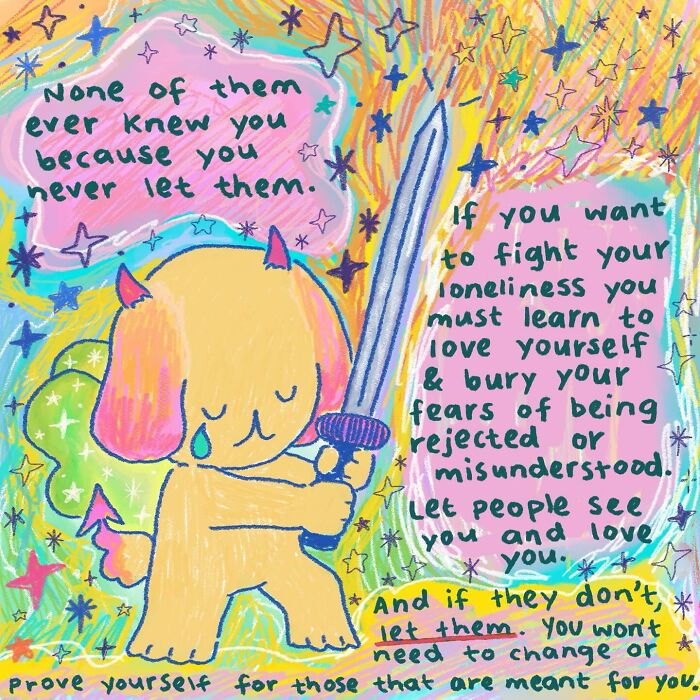 None of them
ever knew you
because you
never let them.
If you want
to fight your
loneliness you
must learn to
love yourself
& bury your
fears of being
rejected or
misunderstood.
Let people see
you and love
you.
And if they don't,
let them. You won't
need to change or
prove yourself for those that are meant for you